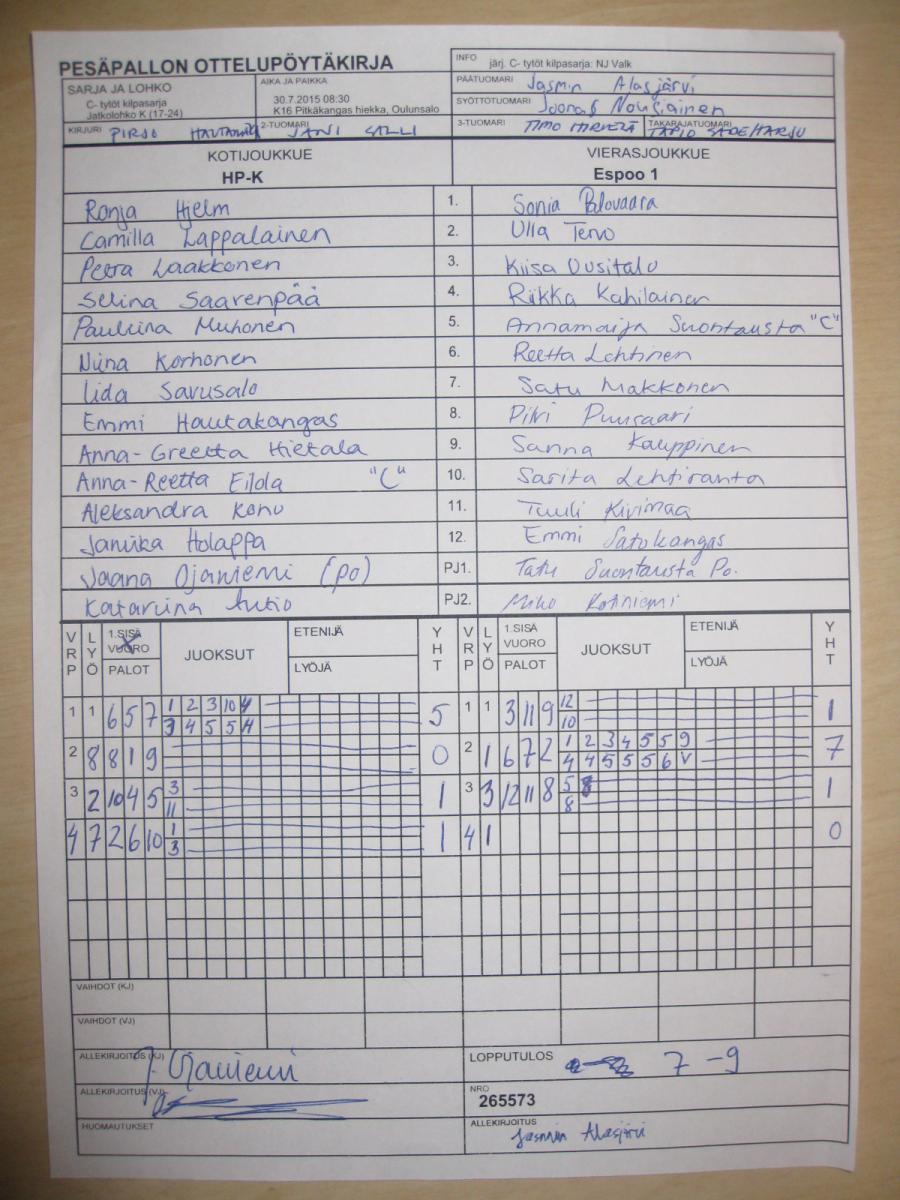 PESÄPALLON OTTELUPÖYTÄKIRJA
INFO järj. C- tytöt kilpasarja: NJ Valk
SARJA JA LOHKO
C- tytöt kilpasarja
Jatkolohko K (17-24)
AIKA JA PAIKKA
30.7.2015 08:30
K16 Pitkäkangas hiekka, Oulunsalo
PÄÄTUOMARI Jasmin Alasjärvi
SYÖTTÖTUOMARI Joonas Nousiainen
KIRJURI PIRJO 2-TUOMARI JANI SALLI
3-TUOMARI TIMO TAKARAJATUOMARI TAPIO SADEHARJU
KOTIJOUKKUE VIERASJOUKKUE
HP-K Espoo 1
Ronja Hjelm 1. Sonia Palovaara
Camilla Lappalainen 2. Ulla Tervo
Peera Laakkonen 3. Kiisa Uusitalo
Selina Saarenpää 4. Riikka Kahilainen
Pauliina Muhonen 5. Annamaija Suontausta "C"
Niina Korhonen 6. Reetta Lehtinen
Iida Savusalo 7. Satu Makkonen
Emmi Hautakangas 8. Pilvi Puusaari
Anna-Greetta Hietala 9. Sanna Kauppinen
Anna-Reetta Eilola "C" 10. Sarita Lehtiranta
Aleksandra Konu 11. Tuuli Kivimaa
Janika Holappa 12. Emmi Satokangas
Jaana Ojaniemi (po) PJ1. Tatu Suontausta Po.
Katariina Autio PJ2. Miko Kotiniemi
VRP LYÖ 1.SISÄ VUORO PALOT JUOKSUT ETENIJÄ LYÖJÄ YHT VRP LYÖ 1.SISÄ VUORO PALOT JUOKSUT ETENIJÄ LYÖJÄ YHT
1 1 6 5 7 1 2 3 10 4 5 1 1 3 11 9 12 1
3 4 5 5 4 10
2 8 8 1 9 0 2 1 6 7 2 1 2 3 4 5 5 9 7
4 4 5 5 5 6 V
3 2 10 4 5 3 1 3 3 12 11 8 5 1
11 8
4 7 2 6 10 1 1 4 1 0
3
VAIHDOT (KJ)
VAIHDOT (VJ)
ALLEKIRJOITUS (KJ) J. Ojaniemi
LOPPUTULOS 7-9
ALLEKIRJOITUS (VJ)
NRO
265573
HUOMAUTUKSET
ALLEKIRJOITUS
Jasmin Alasjärvi